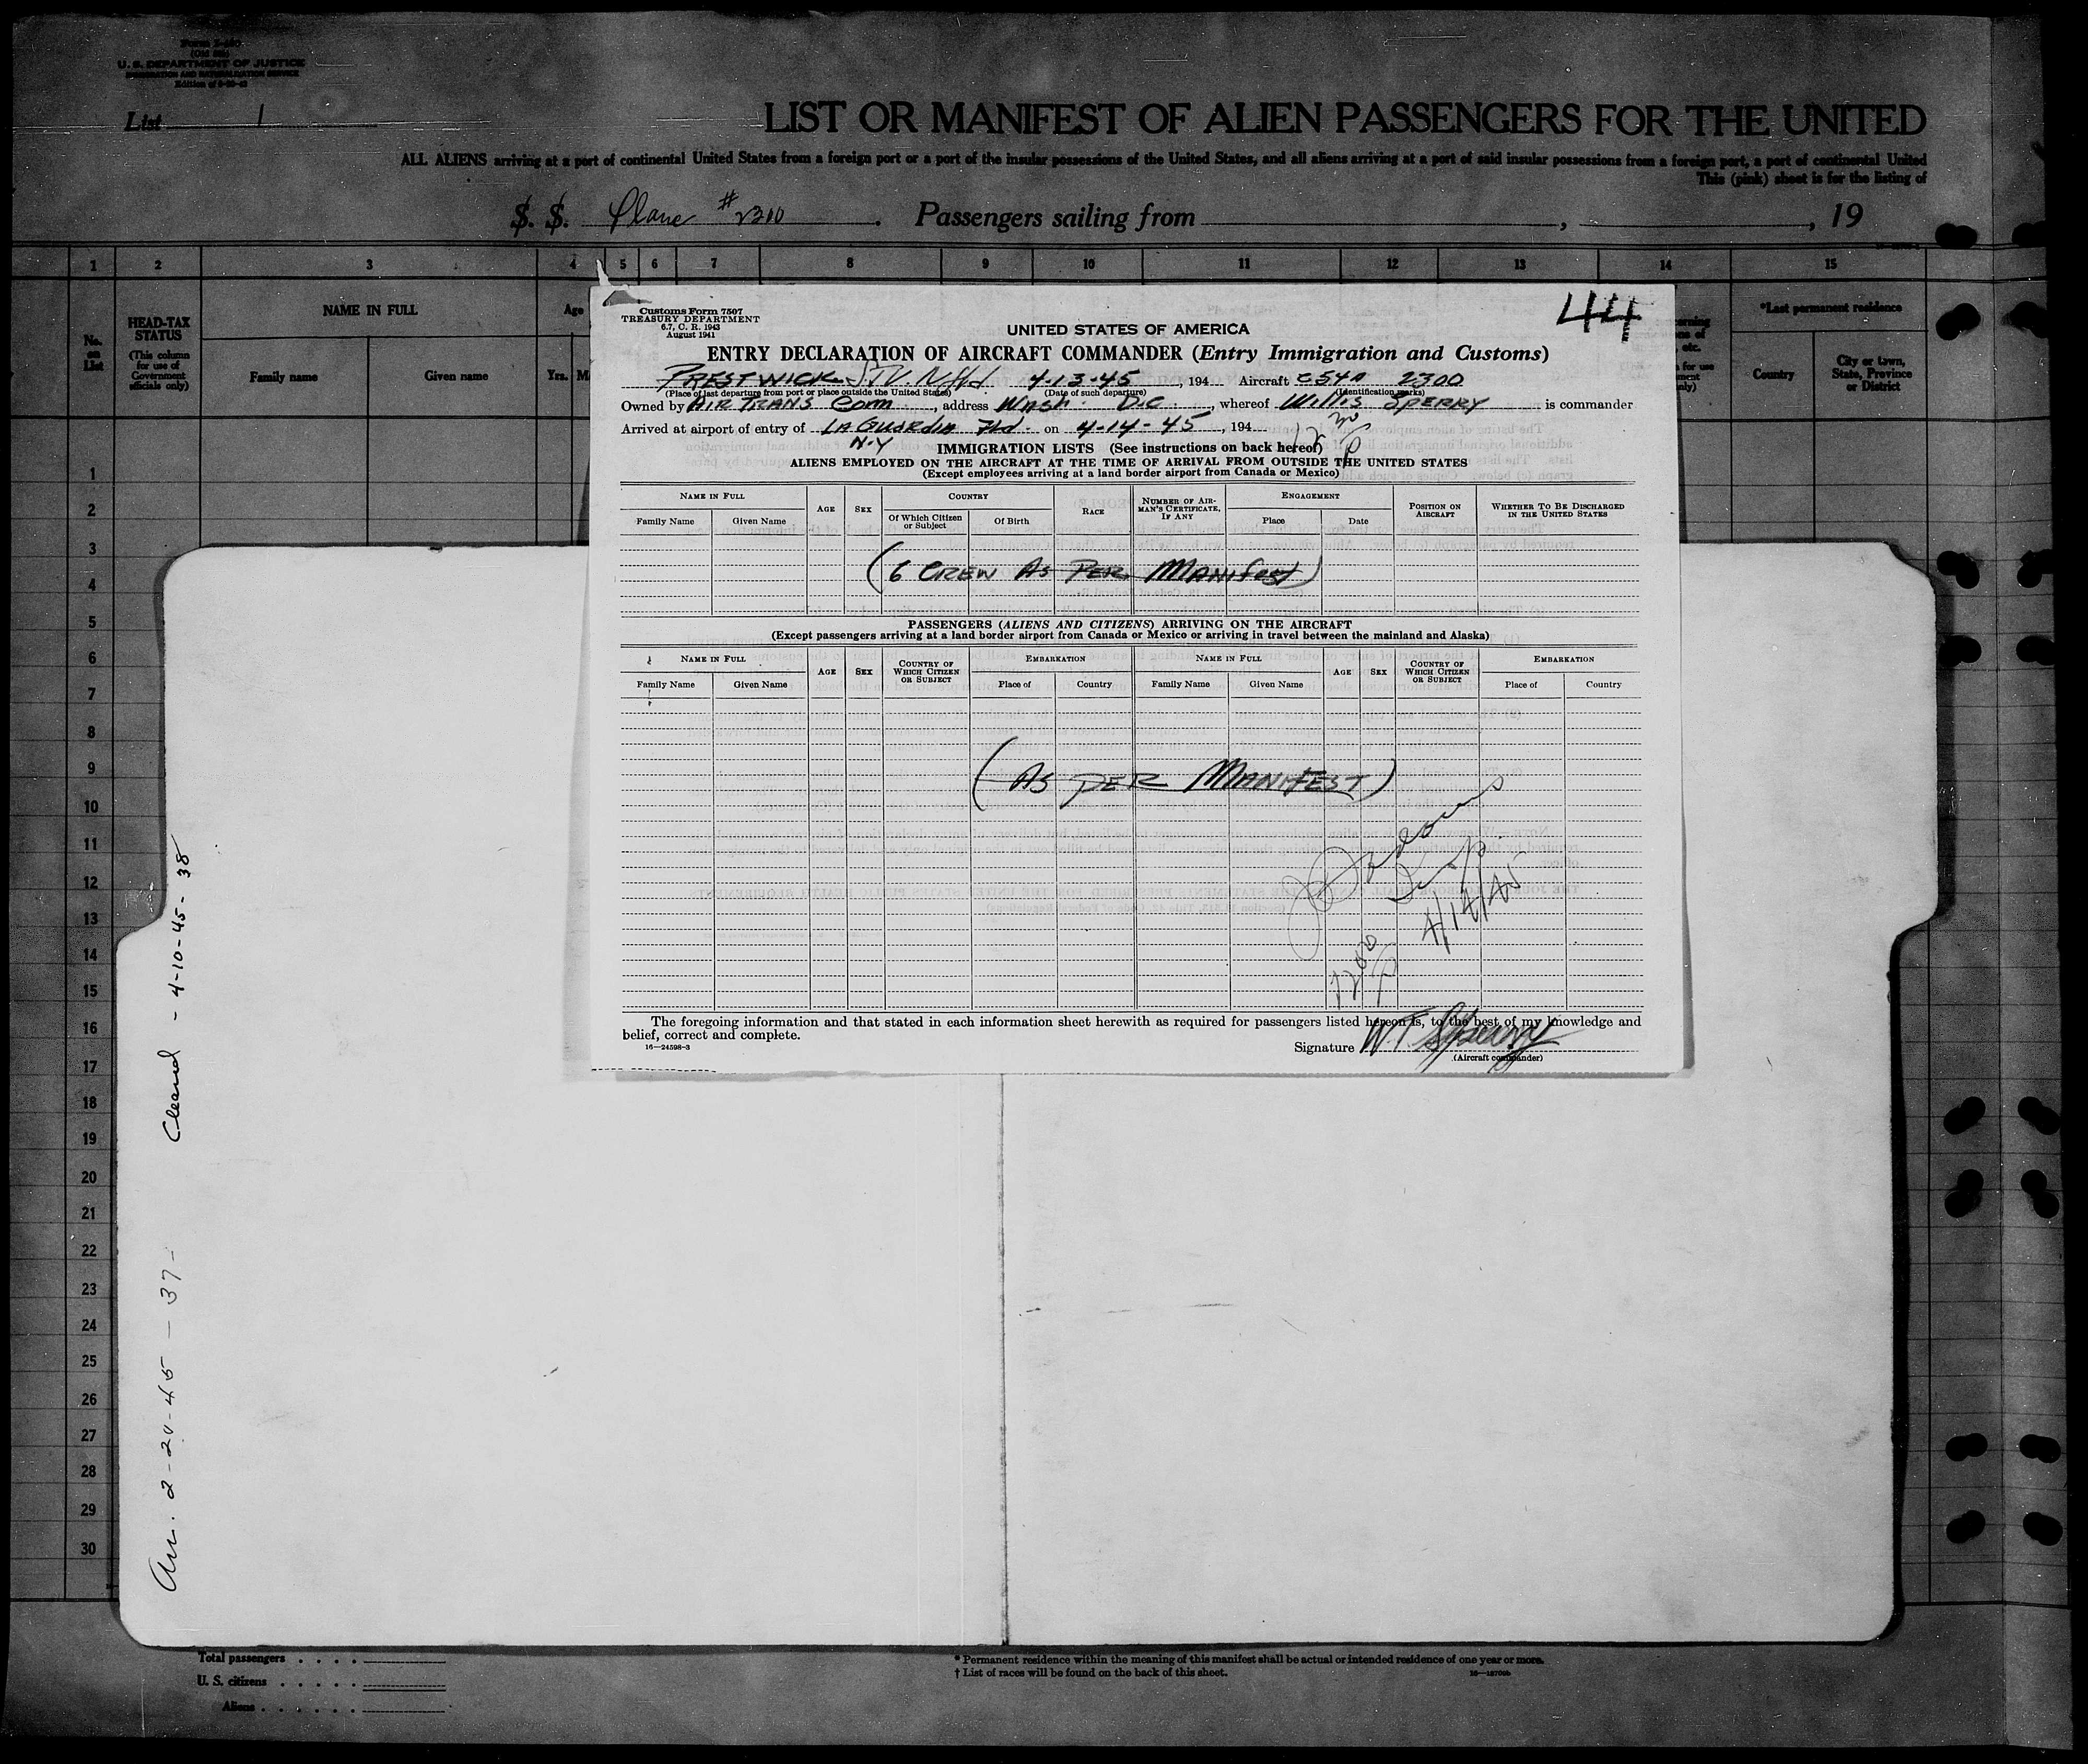 U. S. DEPARTMENT OF JUSTICE
IMMIGRATION AND NATURALIZATION SERVICE
List 1
LIST OR MANIFEST OF ALIEN PASSENGERS FOR THE UNITED
ALL ALIENS arriving at a port of continental United States from a foreign port or a port of the insular possessions of the United States, and all aliens arriving at a port of said insular possessions from a foreign port, a port of continental United
This (pink) sheet is for the listing of
S. S. Plane #2300 . Passengers sailing from , , 19
1 2 3 4 5 6 7 8 9 10 11 12 13 14 15
No. on List
HEAD-TAX STATUS
(This column for use of Government officials only)
NAME IN FULL
Family name Given name
Age
Yrs. M
*Last permanent residence
Country
City or town, State, Province or District
44
Customs Form 7507
TREASURY DEPARTMENT
6.7, C. R. 1943
August 1941
UNITED STATES OF AMERICA
ENTRY DECLARATION OF AIRCRAFT COMMANDER (Entry Immigration and Customs)
PRESTWICK 4-13-45 , 194 Aircraft C54A 2300
(Place of last departure from port or place outside the United States) (Date of such departure) (Identification marks)
Owned by AIR TRANS Comm , address WASH D.C. , whereof Willis SPERRY is commander
Arrived at airport of entry of LA GUARDIA Fld. on 4-14-45 , 194
N.Y
IMMIGRATION LISTS (See instructions on back hereof)
ALIENS EMPLOYED ON THE AIRCRAFT AT THE TIME OF ARRIVAL FROM OUTSIDE THE UNITED STATES
(Except employees arriving at a land border airport from Canada or Mexico)
NAME IN FULL
Family Name Given Name
AGE
SEX
COUNTRY
Of Which Citizen or Subject Of Birth
RACE
NUMBER OF AIRMAN'S CERTIFICATE, IF ANY
ENGAGEMENT
Place Date
POSITION ON AIRCRAFT
WHETHER TO BE DISCHARGED IN THE UNITED STATES
(6 CREW AS PER MANIFEST)
PASSENGERS (ALIENS AND CITIZENS) ARRIVING ON THE AIRCRAFT
(Except passengers arriving at a land border airport from Canada or Mexico or arriving in travel between the mainland and Alaska)
NAME IN FULL
Family Name Given Name
AGE
SEX
COUNTRY OF WHICH CITIZEN OR SUBJECT
EMBARKATION
Place of Country
NAME IN FULL
Family Name Given Name
AGE
SEX
COUNTRY OF WHICH CITIZEN OR SUBJECT
EMBARKATION
Place of Country
(AS PER MANIFEST)
Insp.
4/14/45
The foregoing information and that stated in each information sheet herewith as required for passengers listed hereon is, to the best of my knowledge and
belief, correct and complete.
16—24598-3
Signature W.T. Sperry
(Aircraft commander)
1
2
3
4
5
6
7
8
9
10
11
12
13
14
15
16
17
18
19
20
21
22
23
24
25
26
27
28
29
30
Cleared - 4-10-45- 38
Arr. 2-20-45 - 37-
Total passengers . . . .
U. S. citizens . . . . .
Aliens . . . . . .
* Permanent residence within the meaning of this manifest shall be actual or intended residence of one year or more.
† List of races will be found on the back of this sheet.